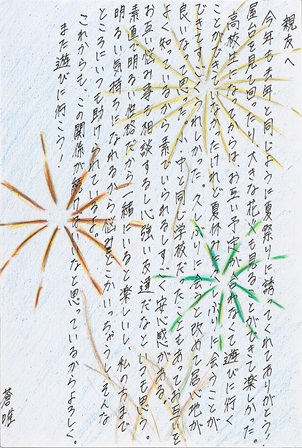 親友へ
今年も去年と同じように夏祭りに誘ってくれてありがとう。
屋台を見て回ったり、大きな花火もあることができて楽しかった。
高校生になってからはお互い予定が合わなくて遊びに行く
ことができなかったけれど夏休みに久しぶりに会うことが
できてすごくうれしかった。久しぶりに会って改めて居心地が
良いなと思いました。中と同じ学校だったこともあってお互いを
よく知っているから素もいられるしすごく安心感がある。
お互い悩み事も相談するし心強い友達だなといつも思う。
素直で明るい性格だから一緒にいると楽しいし、私のまで
明るい気持ちになれるから悩みどこかいっちゃう。そんな
ところにいつも助けられているよ。
これからも、この関係が続けばいいなと思っているからよろしく。
また遊びに行こう！
蒼唯